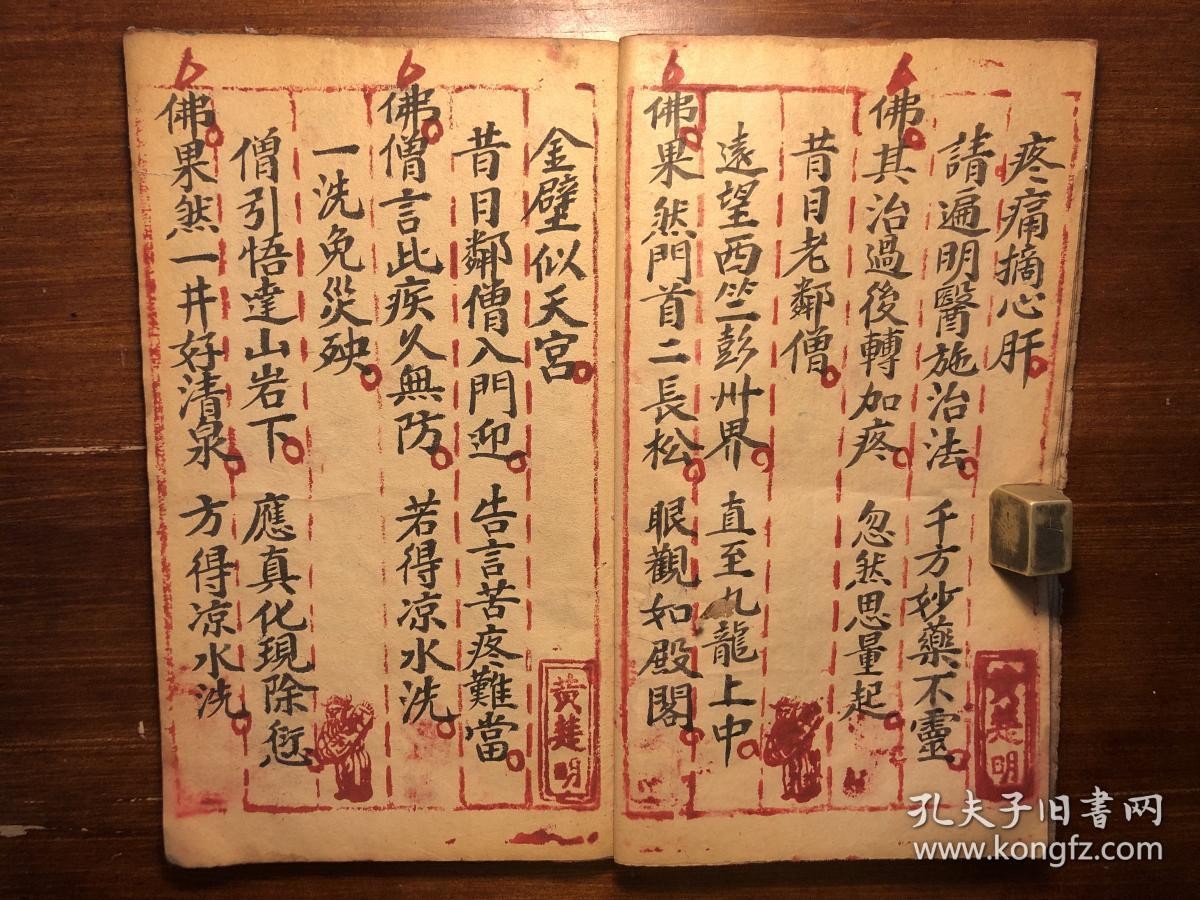 疼痛摘心肝
請遍明醫施治法 千方妙藥不靈
佛其治過後轉加疼 忽然思量起
昔日老鄰僧
遠望西竺彭州界 直至九龍上中
佛果然門首二長松 眼觀如殿閣
黄楚明
金壁似天宮
昔日鄰僧入門迎 告言苦疼難當
佛僧言此疾久無防 若得凉水洗
一洗免災殃
僧引悟達山岩下 應真化現除愆
佛果然一井好清泉 方得凉水洗
黃楚明
孔夫子旧书网
www.kongfz.com